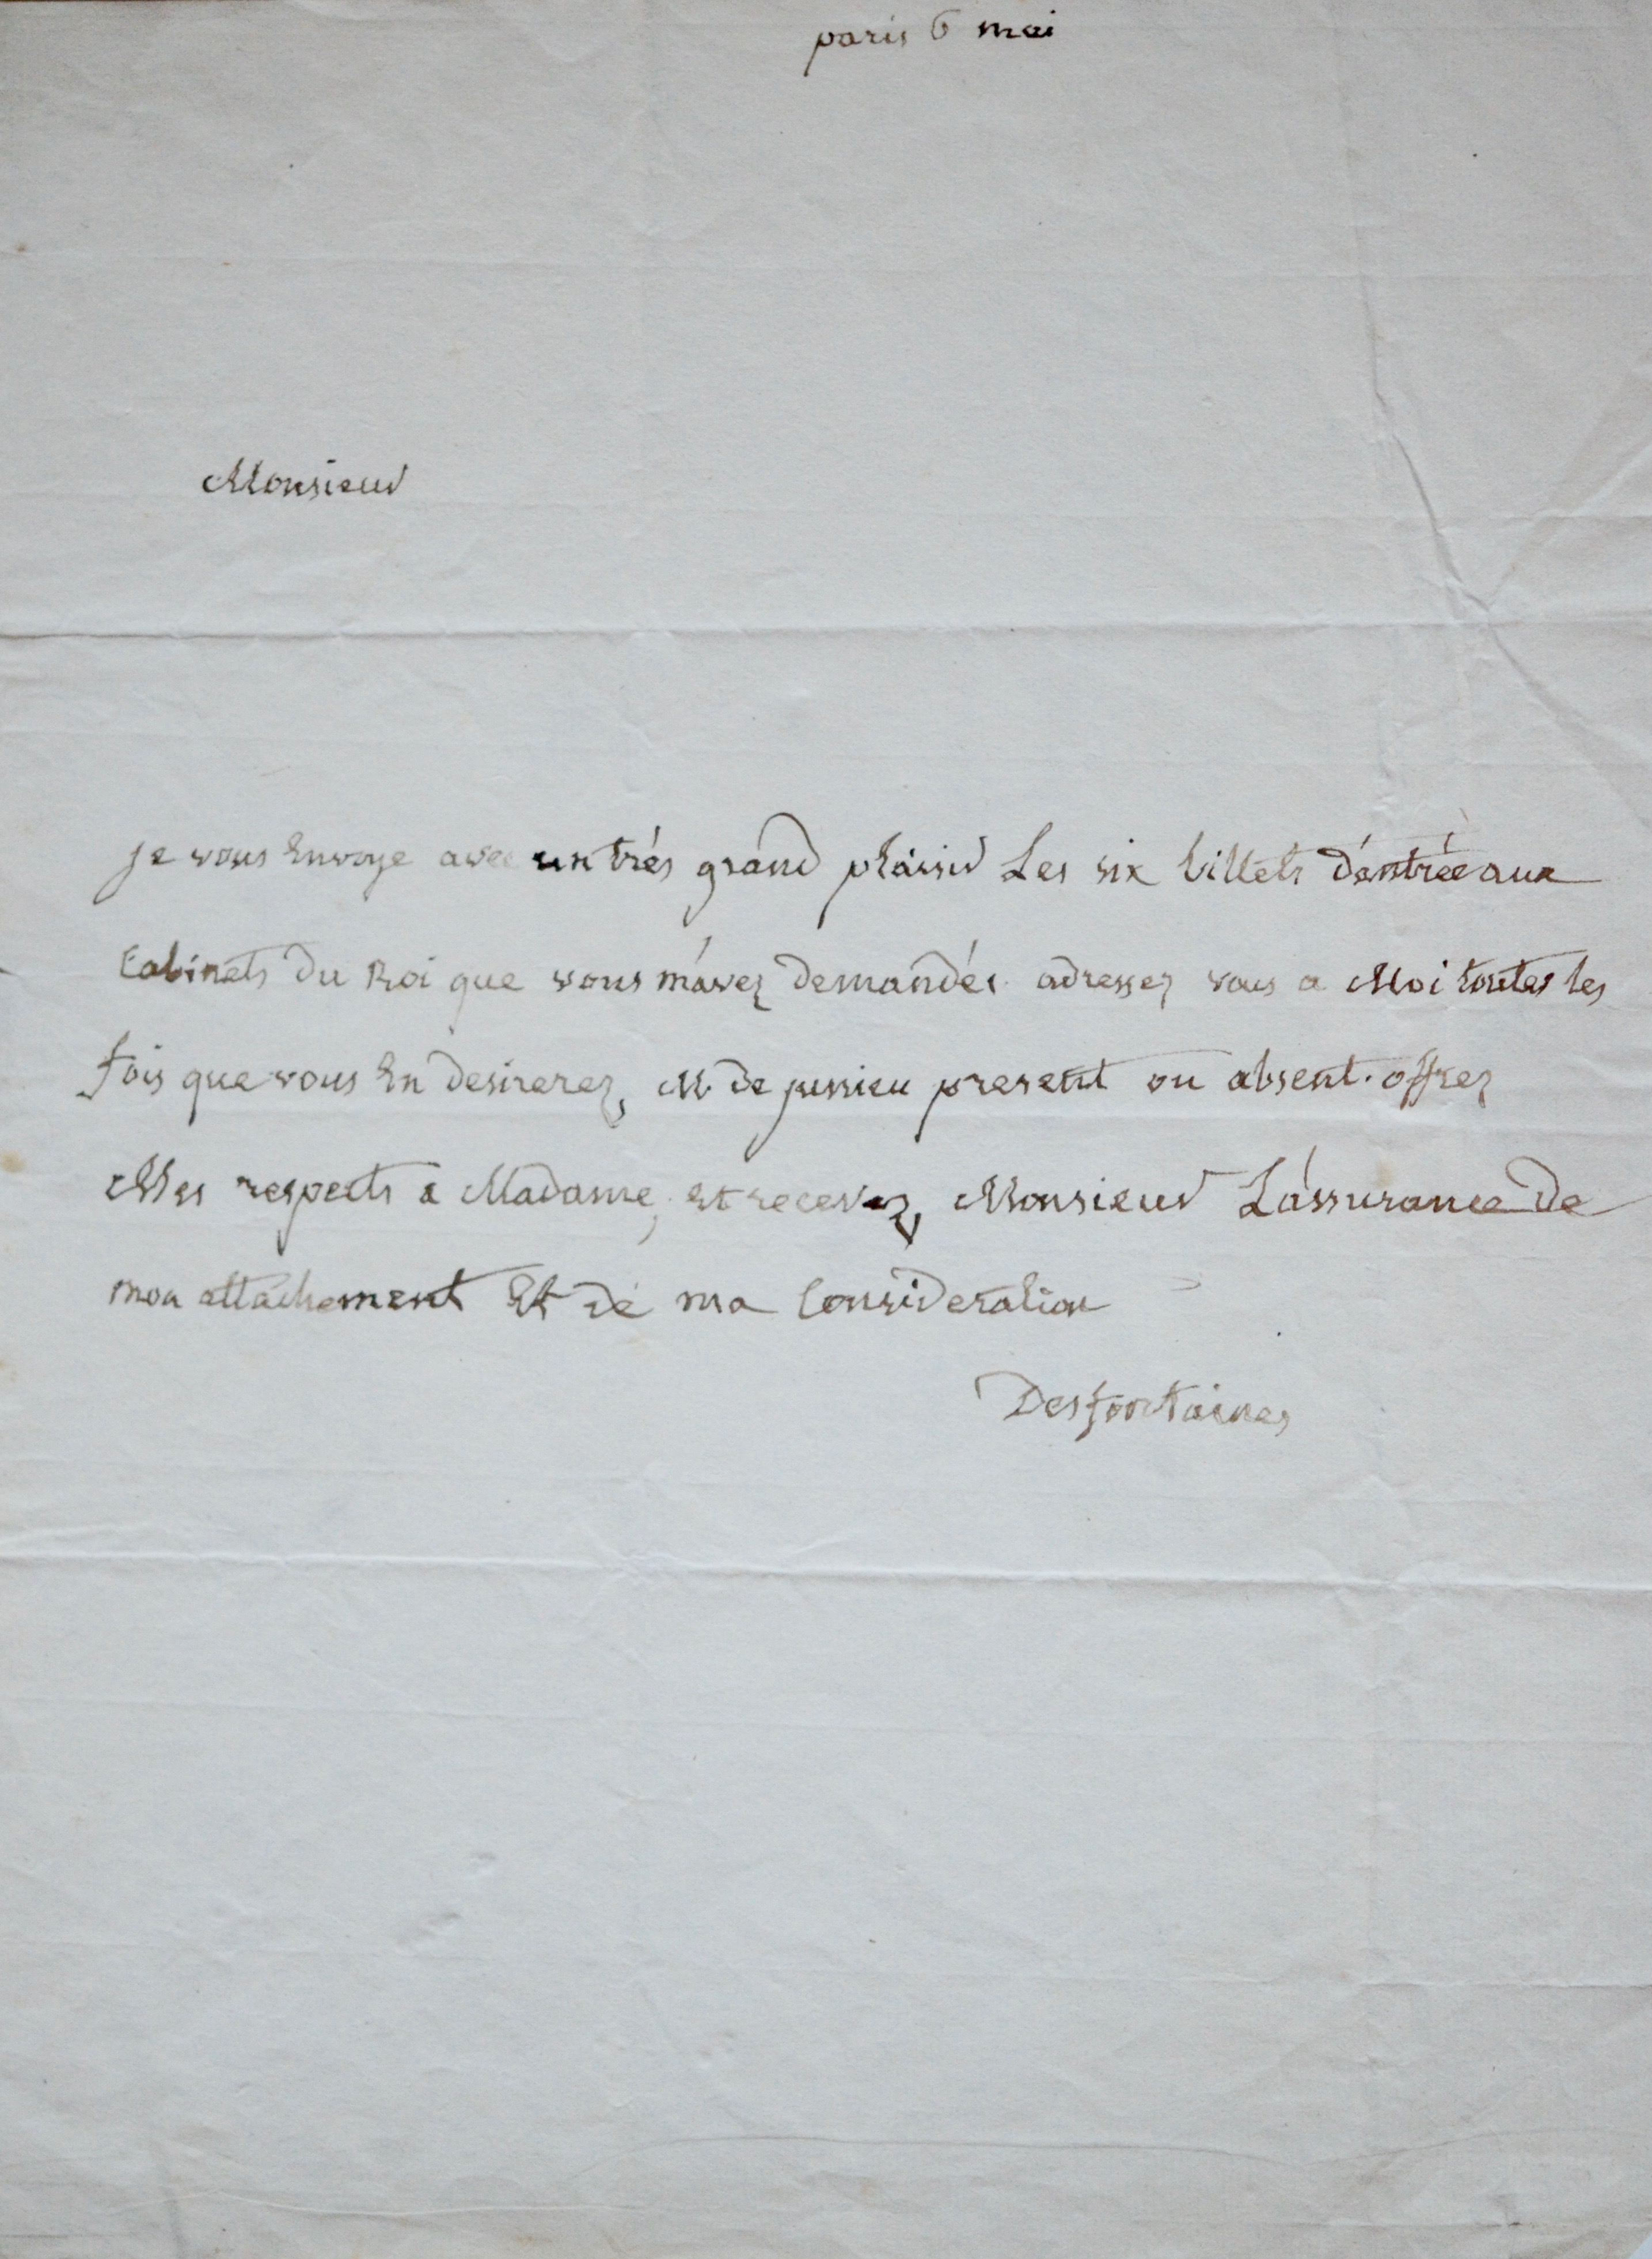 paris 6 mai
Monsieur
je vous Envoye avec un trés grand plaisir Les six billets d'entrée aux
Cabinets du Roi que vous m'avez demandés. adressez vous a Moi toutes les
fois que vous En desirerez, M. de jussieu present ou absent. offrez
Mes respects a Madame, Et recevez, Monsieur L'assurance de
mon attachement Et de ma Consideration
Desfontaines